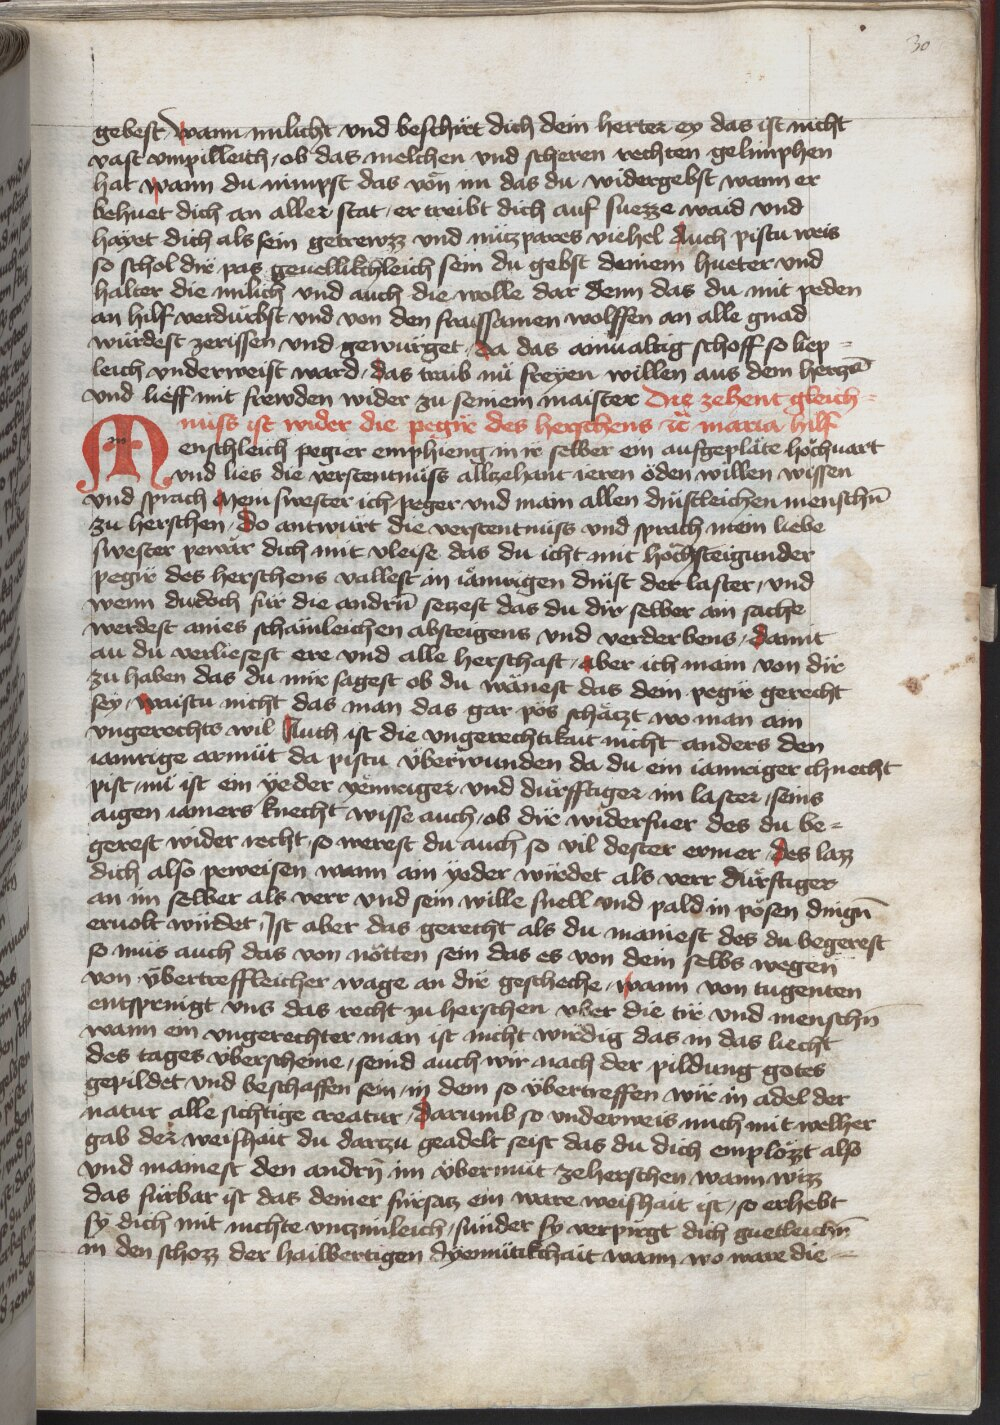 30
gebest / wann milicht vnd beschirt dich dein herter ey das ist nicht
vast vmpilleich / ob das melchen vnd scheren rechten gelimphen
hat wann du nimpst das von im das du widergebst wann er
behuet dich an aller stat / er treibt dich auf suezze waid vnd
hayet dich als sein getrewzz vnd nüczpares viehel Auch pistu weis
so schol dir pas geuellikchleich sein du gebst deinem hueter vnd
halter die milich vnd auch die wolle dar denn das du mit peden
an hilf verdürbst vnd von den fraissamen wolffen an alle gnad
würdest zerissen vnd gewürget / da das ainualtig schoff so liep =
leich vnderweist ward / das traib nü freyen willen aus dem herczn̄
vnd lieff mit frewden wider zu seinem maister Die zehent gleich =
nuss ist wider die pegir des herschens ꝛc̄ maria hilf
Menschleich pegier emphieng in ir selber ein aufgepläte höchuart
vnd lies die verstentnüss allczehant ieren öden willen wissen
vnd sprach Mein swester ich peger vnd main allen dinstleichen menschn̄
zu herschen / Do antwurt die verstentnüss vnd sprach mein liebe
swester pewar dich mit vleise das du icht mit höchsteigunder
pegir des herschens vallest in iämrigen dinst der laster / vnd
wenn du doch für die andrn̄ seczest das du dir selber ain sache
werdest aines schämleichen absteigens vnd verderbens / damit
an du verliesest ere vnd alle herschaft / aber ich main von dir
zu haben das du mir sagest ob du wänest das dein pegir gerecht
sey / waistu nicht das man das gar pös schäczt wo man ain
vngerechts wil Auch ist die vngerechtikait nicht anders den
iamrige armüt da pistu vberwunden da du ein iamriger chnecht
pist / nü ist ein yeder yemriger vnd dürfftiger im laster / seins
aigen iamers knecht wisse auch / ob dir widerfuer des du be =
gerest wider recht / so werest du auch so vil dester ermer / des lazz
dich also peweisen wann ain yeder würdet als verr dürftiger
an im selber als verr vnd sein wille snell vnd pald in pösen dingn̄
eruolt würdet / Ist aber das gerecht als du mainest des du begerest
so mus auch das von nötten sein das es von dem selbs wegen
von vbertreffleicher wage an dir gescheche / wann von tugenten
entspringt vns das recht zu herschen vber die tir vnd menschn̄
wann ein vngerechter man ist nicht wirdig das in das liecht
des tages vberscheine / seind auch wir nach der pildung gotes
gepildet vnd beschaffen sein / in dem so vbertreffen wir in adel der
natur alle sichtige creatur / darumb so vnderweis mich mit welher
gab der weishait du darzu geadelt seist das du dich emplözt also
vnd mainest den andrn̄ im vbermüt ze herschen wann wizz
das fürbar ist das deiner fürsacz ein ware weishait ist / so erhebt
sy dich mit nichte vnczimleich / sunder sy verpirgt dich guetleichn̄
in den schozz der hailbertigen dyemütikchait wann wo ware die =